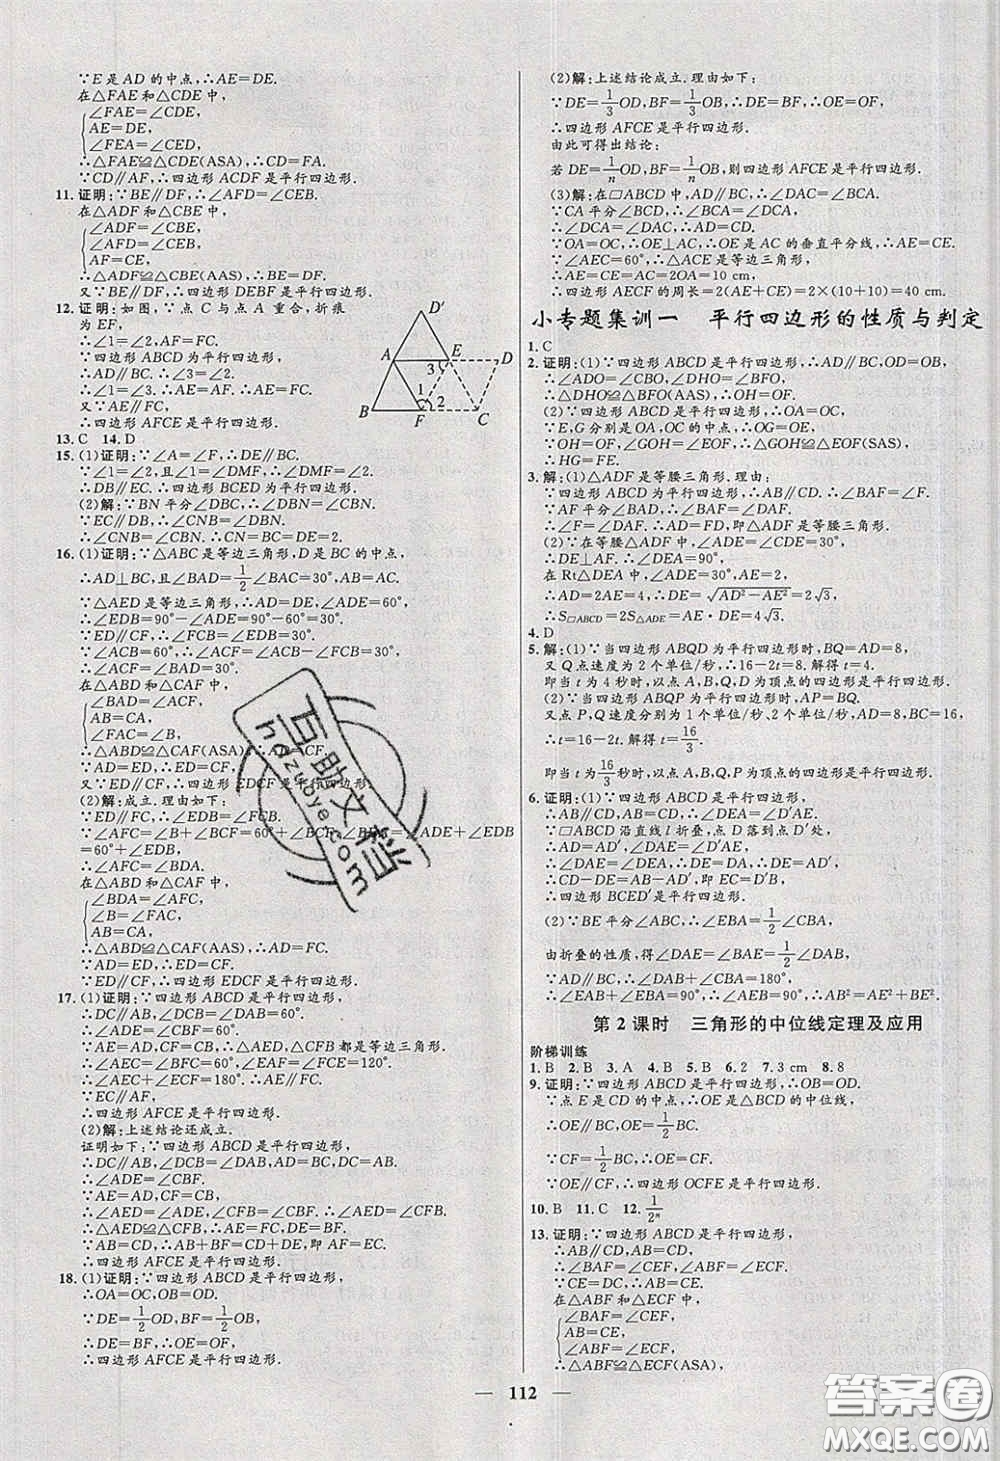 ∵E是AD的中点,∴AE=DE.
在△FAE和△CDE中,
∠FAE=∠CDE,
AE=DE,
∠FEA=∠CED,
∴△FAE≌△CDE(ASA),∴CD=FA.
∵CD∥FA,∴四边形ACDF是平行四边形.
11.证明:∵BE∥DF,∴∠AFD=∠CEB.
在△ADF和△CBE中,
∠ADF=∠CBE,
∠AFD=∠CEB,
AF=CE,
∴△ADF≌△CBE(AAS),∴BE=DF.
又∵BE∥DF,∴四边形DEBF是平行四边形.
12.证明:如图,∵点C与点A重合,折痕
为EF,
∴∠1=∠2,AF=FC.
∵四边形ABCD为平行四边形,
∴AD∥BC.∴∠3=∠2.
∴∠1=∠3.∴AE=AF.∴AE=FC.
又∵AE∥FC,
∴四边形AFCE是平行四边形.
D′
A E D
3
1
2
B F C
13.C 14.D
15.(1)证明:∵∠A=∠F,∴DE∥BC.
∵∠1=∠2,且∠1=∠DMF,∴∠DMF=∠2.
∴DB∥EC.∴四边形BCED为平行四边形.
(2)解:∵BN平分∠DBC,∴∠DBN=∠CBN.
∵EC∥DB,∴∠CNB=∠DBN.
∴∠CNB=∠CBN.∴CN=BC=DE=2.
16.(1)证明:∵△ABC是等边三角形,D是BC的中点,
∴AD⊥BC,且∠BAD=1/2∠BAC=30°,AB=AC.
∵△AED是等边三角形,∴AD=AE,∠ADE=60°,
∴∠EDB=90°-∠ADE=90°-60°=30°.
∵ED∥CF,∴∠FCB=∠EDB=30°.
∵∠ACB=60°,∴∠ACF=∠ACB-∠FCB=30°.
∴∠ACF=∠BAD=30°.
在△ABD和△CAF中,
∠BAD=∠ACF,
AB=CA,
∠FAC=∠B,
∴△ABD≌△CAF(ASA),∴AD=CF.
∵AD=ED,∴ED=CF.
又∵ED∥CF,∴四边形EDCF是平行四边形.
(2)解:成立.理由如下:
∵ED∥FC,∴∠EDB=∠FCB.
∵∠AFC=∠B+∠BCF=60°+∠BCF,∠BDA=∠ADE+∠EDB
=60°+∠EDB,
∴∠AFC=∠BDA.
在△ABD和△CAF中,
∠BDA=∠AFC,
∠B=∠FAC,
AB=CA,
∴△ABD≌△CAF(AAS),∴AD=FC.
∵AD=ED,∴ED=CF.
又∵ED∥CF,∴四边形EDCF是平行四边形.
17.(1)证明:∵四边形ABCD是平行四边形,
∴DC∥AB,∠DCB=∠DAB=60°.
∴∠ADE=∠CBF=60°.
∵AE=AD,CF=CB,∴△AED,△CFB都是等边三角形.
∴∠AEC=∠BFC=60°,∠EAF=120°.
∴∠AEC+∠EAF=180°.∴CE∥AF.
∵EC∥AF,
∴四边形AFCE是平行四边形.
(2)解:上述结论还成立.
证明如下:∵四边形ABCD是平行四边形,
∴DC∥AB,∠CDA=∠CBA,AD=BC,DC=AB.
∴∠ADE=∠CBF.
∵AE=AD,CF=CB,
∴∠AED=∠ADE,∠CFB=∠CBF.∴∠AED=∠CFB.
又∵AD=BC,∴△ADE≌△CBF(AAS).∴ED=FB.
∵AB=CD,∴AB+BF=CD+DE,即AF=EC.
又∵EC∥AF,∴四边形AFCE是平行四边形.
18.(1)证明:∵四边形ABCD是平行四边形,
∴OA=OC,OB=OD.
∵DE=1/2OD,BF=1/2OB,
∴DE=BF,∴OE=OF.
∴四边形AFCE是平行四边形.
(2)解:上述结论成立.理由如下:
∵DE=1/3OD,BF=1/3OB,∴DE=BF,∴OE=OF,
∴四边形AFCE是平行四边形.
由此可得出结论:
若DE=1/nOD,BF=1/nOB,则四边形AFCE是平行四边形.
(3)解:在▱ABCD中,AD∥BC,∴∠DAC=∠BCA.
∵CA平分∠BCD,∴∠BCA=∠DCA,
∴∠DCA=∠DAC,∴AD=CD.
∵OA=OC,∴OE⊥AC,∴OE是AC的垂直平分线,∴AE=CE.
∵∠AEC=60°,∴△ACE是等边三角形,
∴AE=CE=AC=2OA=10 cm,
∴四边形AECF的周长=2(AE+CE)=2×(10+10)=40 cm.
小专题集训一 平行四边形的性质与判定
1.C
2.证明:(1)∵四边形ABCD是平行四边形,∴AD∥BC,OD=OB.
∴∠ADO=∠CBO,∠DHO=∠BFO,
∴△DHO≌△BFO(AAS),∴OH=OF.
(2)∵四边形ABCD是平行四边形,∴OA=OC,
∵E,G分别是OA,OC的中点,∴OG=OE,
∵OH=OF,∠GOH=∠EOF,∴△GOH≌△EOF(SAS),
∴HG=FE.
3.解:(1)△ADF是等腰三角形.理由:
∵四边形ABCD为平行四边形,∴AB∥CD.∴∠BAF=∠F.
∵AF平分∠BAD,∴∠BAF=∠DAF,
∴∠F=∠DAF.∴AD=FD,即△ADF是等腰三角形.
(2)∵在等腰△ADF中,DE是中线,
∴DE⊥AF.∴∠DEA=90°.
在Rt△DEA中,∵∠DAE=30°,DE=2,
∴AD=2DE=4,∴AE=√AD²-DE²=2√3,
∴S▱ABCD=2S△ADE=AE·DE=4√3.
4.D
5.解:(1)∵当四边形ABQD为平行四边形时,BQ=AD=8,
又Q点速度为2个单位/秒,∴16-2t=8.解得t=4.
即当t为4秒时,以点A,B,Q,D为顶点的四边形是平行四边形.
(2)∵当四边形ABQP为平行四边形时,AP=BQ.
又点P,Q速度分别为1个单位/秒、2个单位/秒,AD=8,BC=16,
∴t=16-2t.解得t=16/3,
即当t为16/3秒时,以点A,B,Q,P为顶点的四边形是平行四边形.
6.证明:(1)∵四边形ABCD是平行四边形,
∴AB∥CD,AB=CD,∴∠EAD′=∠DEA,
∵▱ABCD沿直线l折叠,点D落到点D′处,
∴AD=AD′,∠DAE=∠EAD′,
∴∠DAE=∠DEA,∴DA=DE,∴DE=AD′,
∴CD-DE=AB-AD′,即EC=D′B.
∴四边形BCED′是平行四边形.
(2)∵BE平分∠ABC,∴∠EBA=1/2∠CBA,
由折叠的性质,得∠DAE=∠BAE=1/2∠DAB,
∵AD∥BC,∴∠DAB+∠CBA=180°,
∴∠EAB+∠EBA=90°,∴∠AEB=90°,∴AB²=AE²+BE².
第2课时 三角形的中位线定理及应用
阶梯训练
1.B 2.B 3.A 4.B 5.B 6.2 7.3 cm 8.8
9.证明:∵四边形ABCD是平行四边形,∴OB=OD.
∵点E是CD的中点,∴OE是△BCD的中位线,
∴OE∥BC,且OE=1/2BC.
∵CF=1/2BC,∴OE=CF.
∵OE∥CF,∴四边形OCFE是平行四边形.
10.B 11.C 12.1/2ⁿ
13.证明:∵四边形ABCD是平行四边形,
∴AB∥CD,AB=CD,OA=OC.
∴∠BAF=∠CEF,∠ABF=∠ECF.
∵CE=DC,∴AB=CE.
在△ABF和△ECF中,
∠BAF=∠CEF,
AB=CE,
∠ABF=∠ECF,
∴△ABF≌△ECF(ASA),
112
百助文档
hdzuoye.com
答案圈
MXQE.COM